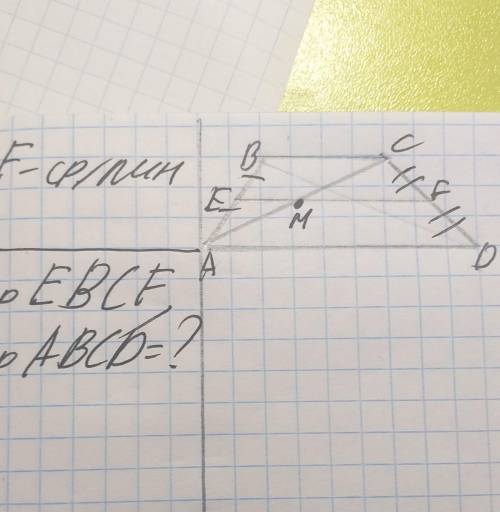 F-ср/лин
EBCF
ABCD=?
B
C
E
M
F
A
D